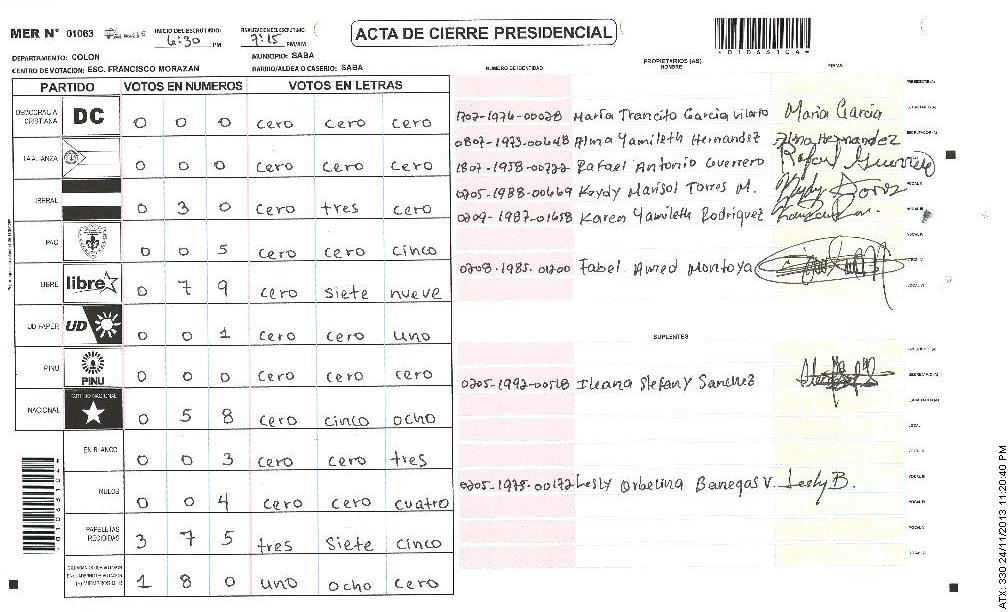 MER N° 01063
INICIO DEL ESCRUTINIO: 6:30 PM
FINALIZACION DEL ESCRUTINIO: 7:15 PM/AM
ACTA DE CIERRE PRESIDENCIAL
DEPARTAMENTO: COLON
MUNICIPIO: SABA
CENTRO DE VOTACION: ESC. FRANCISCO MORAZAN
BARRIO/ALDEA O CASERIO: SABA
PARTIDO VOTOS EN NUMEROS VOTOS EN LETRAS
DEMOCRACIA CRISTIANA DC 0 0 0 cero cero cero
LA ALIANZA 0 0 0 cero cero cero
LIBERAL 0 3 0 cero tres cero
PAC 0 0 5 cero cero cinco
LIBRE libre 0 7 9 cero siete nueve
UD FAPER UD 0 0 1 cero cero uno
PINU PINU 0 0 0 cero cero cero
NACIONAL PARTIDO NACIONAL 0 5 8 cero cinco ocho
EN BLANCO 0 0 3 cero cero tres
NULOS 0 0 4 cero cero cuatro
PAPELETAS RECIBIDAS 3 7 5 tres siete cinco
1 8 0 uno ocho cero
NUMERO DE IDENTIDAD
PROPIETARIOS (AS)
NOMBRE
FIRMA
1707-1976-00028 María Trancito Garcia Vilorio Maria Garcia
0807-1975-00648 Alma Yamileth Hernandez Alma Hernandez
1804-1958-00722 Rafael Antonio Guerrero Rafael Guerrero
0205-1988-00669 Keydy Marisol Torres M.
0209-1987-01658 Karen Yamileth Rodriguez
0208-1985-01200 Fabel Amed Montoya
SUPLENTES
0205-1992-00518 Ileana Stefany Sanchez
0205-1975-00172 Lesly Orbelina Banegas V. Lesly B.
ATX: 330 24/11/2013 11:20:40 PM